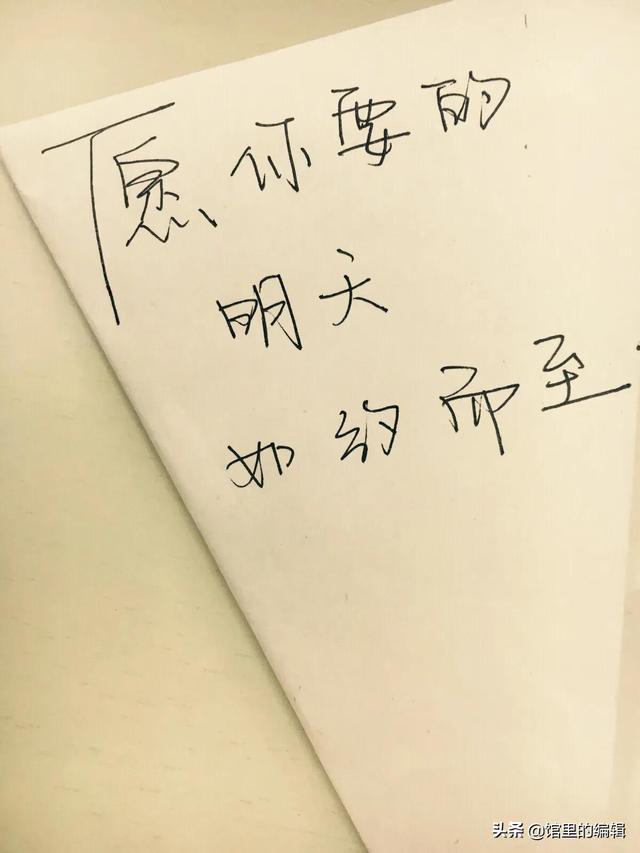 愿你要的
明天
如约而至
头条 @馆里的编辑